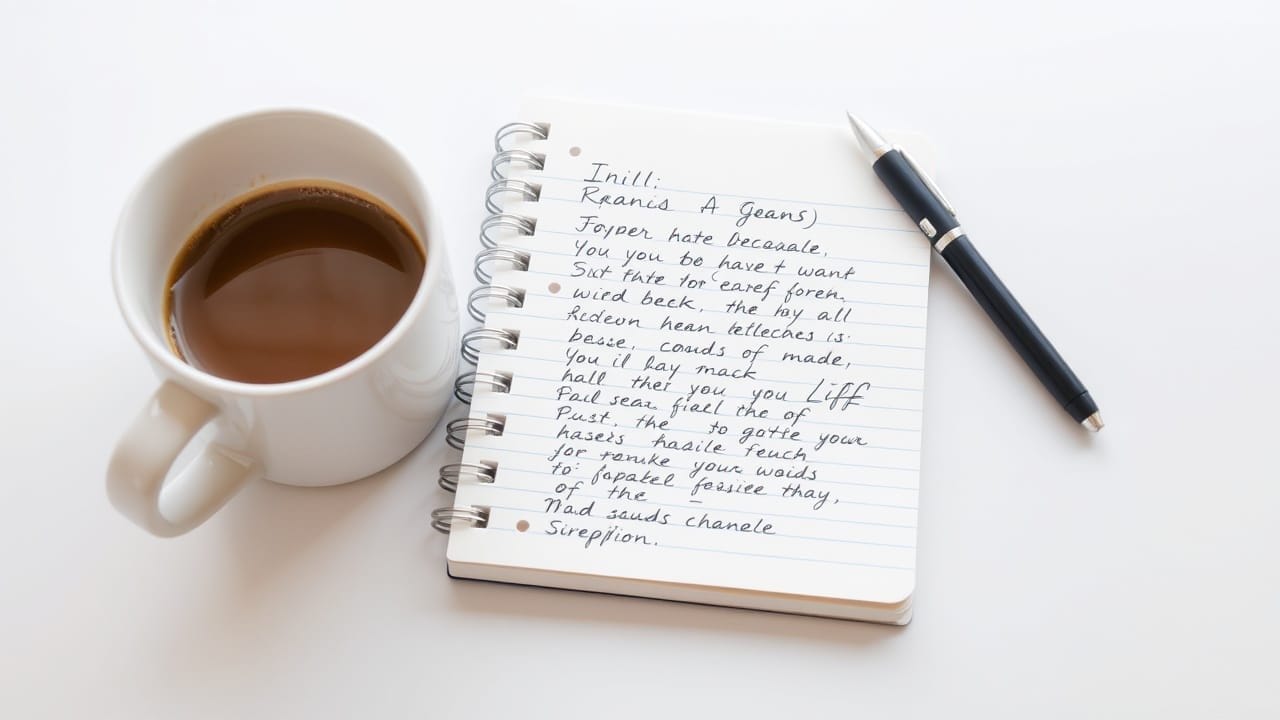 Inill:
Rranis A Geans)
Joyper hate Decaaale,
You you bo have t want
Sut thte tor earef foren,
wied beck, the hy all
hedeon hean letleches is.
besse, conds of made,
You il hay mack
hall ther you you Liff
Fail sear fiall the of
Pust, the to gotte your
hasers hasile feuch
for your woids
to: fopatel fessiee thay,
of the –
Mad sauds chanele
Sirepjion.